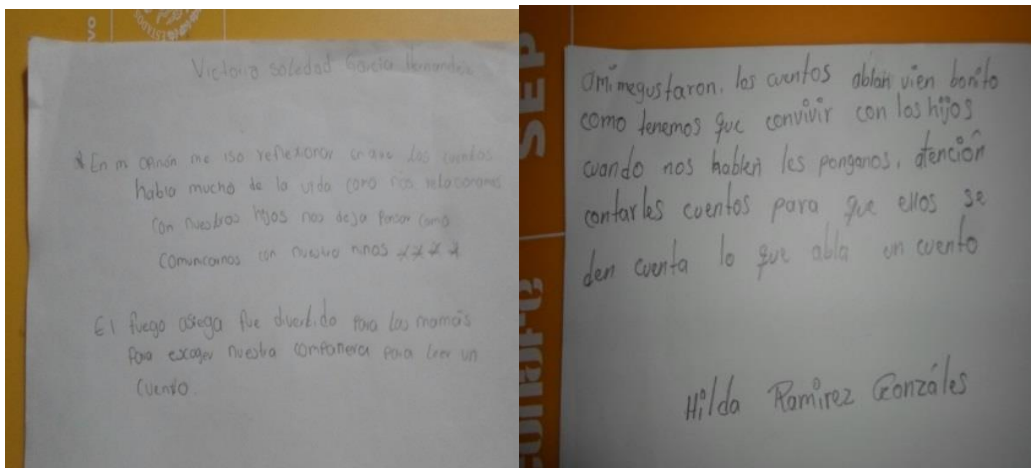 Victoria Soledad García Hernandez
* En mi opinón me iso reflexionar en que los cuentos
habla mucho de la vida como nos relacionamos
con nuestros hijos nos deja pensar como
comunicarnos con nuestro niños ****
El fuego asiega fue divertido para las mamás
para escoger nuestra compañera para leer un
cuento.
SEP
Ami megustaron. los cuentos ablan vien bonito
como tenemos que convivir con los hijos
cuando nos hablen les ponganos. atención
contarles cuentos para que ellos se
den cuenta lo que abla un cuento
Hilda Ramirez Gonzáles